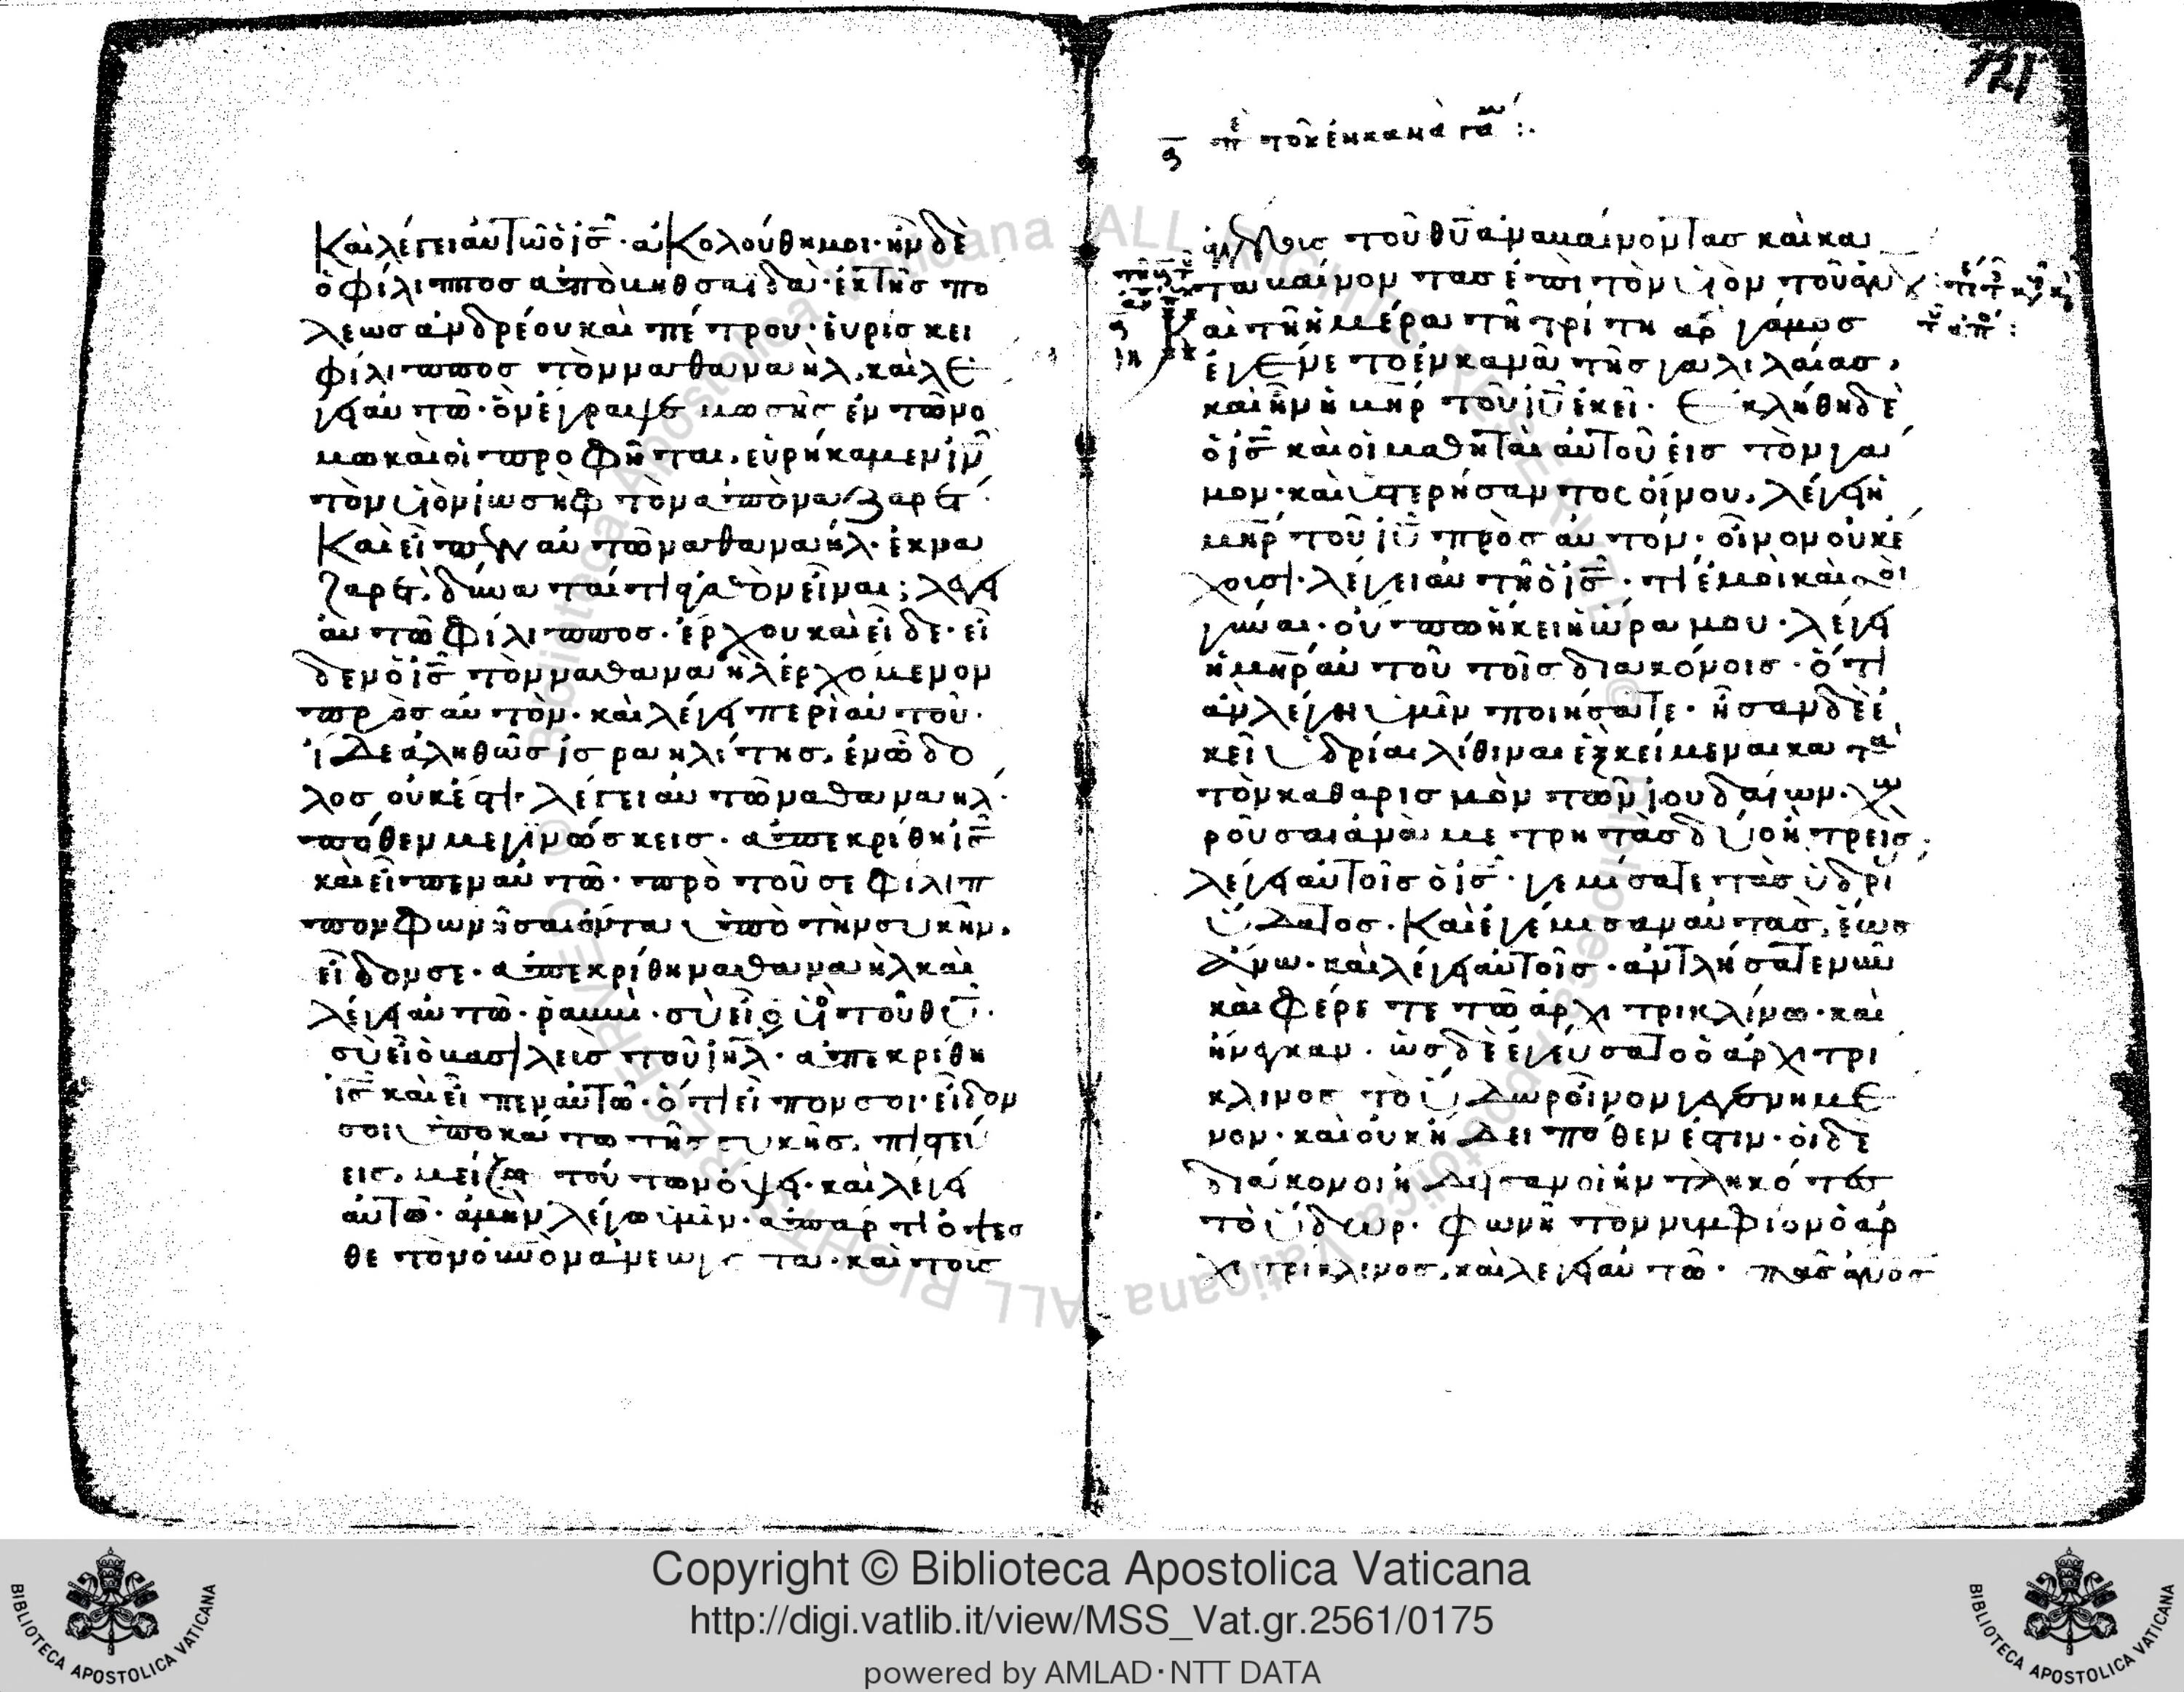 Καὶ λέγει αὐτῶ ὁ ις̅· ἀκολούθη μοι· ἦν δὲ
ὁ φίλιππος ἀπὸ βηθσαϊδὰ· ἐκ τῆς πο
λεως ἀνδρέου καὶ πέτρου· ἑυρίσκει
φίλιππος τὸν ναθαναὴλ, καὶ λέ
γει αὐτῶ· ὃν ἔγραψε μωσῆς ἐν τῶ νό
μω καὶ οἱ προφῆται, εὑρήκαμεν ιν̅
τὸν υἱὸν ἰωσὴφ τὸν ἀπὸ ναζαρέτ·
Καὶ εἶπεν αὐτῶ ναθαναήλ· ἐκ να
ζαρέτ, δύναταί τι ἀγαθὸν εἶναι; λέγει
αὐτῶ φίλιππος· ἔρχου καὶ εἶδε· εἶ
δεν ὁ ις̅ τὸν ναθαναὴλ ἐρχόμενον
πρὸς αὐτὸν· καὶ λέγει περὶ αὐτοῦ·
ἴδε ἀληθῶς ἰσραηλίτης, ἐν ῶ δό
λος οὐκ ἔστι· λέγει αὐτῶ ναθαναήλ·
πόθεν με γινώσκεις· ἀπεκρίθη ις̅
καὶ εἶπεν αὐτῶ· πρὸ τοῦ σε φίλιπ
πον φωνῆσαι ὄντα ὑπὸ τὴν συκῆν,
εἶδόν σε· ἀπεκρίθη ναθαναὴλ καὶ
λέγει αὐτῶ· ῥαββὶ· σὺ εἶ ὁ υἱὸς τοῦ θυ̅·
σὺ εἶ ὁ βασιλεὺς τοῦ ιη̅λ· ἀπεκρίθη
ις̅ καὶ εἶπεν αὐτῶ· ὅτι εἶπόν σοι· εἶδόν
σοι ὑποκάτω τῆς συκῆς, πιστεύ
εις, μείζω τούτων ὄψει· καὶ λέγει
αὐτῶ· ἀμὴν λέγω ὑμῖν· ἀπάρτι ὄψεσ
θε τὸν οὐνὸν ἀνεωγότα· καὶ τοὺς
ϛ̅ πε τοῦ ἐν κανὰ γάμου :.
121
ἀγγέλους τοῦ θυ̅ ἀναβαίνοντας καὶ κα
ταβαίνοντας ἐπὶ τὸν υἱὸν τοῦ ἀνου
Καὶ τῆ ἡμέρα τῆ τρίτη γάμος
ἐγένετο ἐν κανᾶ τῆς γαλιλαίας,
καὶ ἦν ἡ μηρ̅ τοῦ ιυ̅ ἐκεῖ· ἐκλήθη δὲ
ὁ ις̅ καὶ οἱ μαθηταὶ αὐτοῦ εἰς τὸν γά
μον· καὶ ὑστερήσαντος οἴνου, λέγει ἡ
μηρ̅ τοῦ ιυ̅ πρὸς αὐτόν· οἶνον οὐκ ἔ
χουσι· λέγει αὐτῆ ὁ ις̅· τί ἐμοὶ καὶ σοὶ
γύναι· οὔπω ἥκει ἡ ὥρα μου· λέγει
ἡ μηρ̅ αὐτοῦ τοῖς διακόνοις· ὅ τι
ἂν λέγη ὑμῖν ποιήσατε· ἦσαν δὲ ἐ
κεῖ ὑδρίαι λίθιναι ἓξ κείμεναι κατὰ
τὸν καθαρισμὸν τῶν ἰουδαίων· χω
ροῦσαι ἀνὰ μετρητὰς δύο ἢ τρεις,
λέγει αὐτοῖς ὁ ις̅· γεμίσατε τὰς ὑδρί
ὕδατος. Καὶ ἐγέμισαν αὐτάς, ἕως
ἄνω. καὶ λέγει αὐτοῖς· ἀντλήσατε νῦν
καὶ φέρετε τῶ ἀρχιτρικλίνω· καὶ
ἤνεγκαν· ὡς δὲ ἐγεύσατο ὁ ἀρχιτρί
κλινος τὸ ὕδωρ οἶνον γεγενημέ
νον· καὶ οὐκ ἤδει πόθεν ἐστιν· οἱ δὲ
διάκονοι ἤδεισαν οἱ ἠντληκότες
τὸ ὕδωρ· φωνεῖ τὸν νυμφίον ὁ ἀρ
χιτρίκλινος, καὶ λέγει αὐτῶ· πᾶς ἀνος
Copyright © Biblioteca Apostolica Vaticana
http://digi.vatlib.it/view/MSS_Vat.gr.2561/0175
powered by AMLAD·NTT DATA
BIBLIOTECA APOSTOLICA VATICANA
BIBLIOTECA APOSTOLICA VATICANA